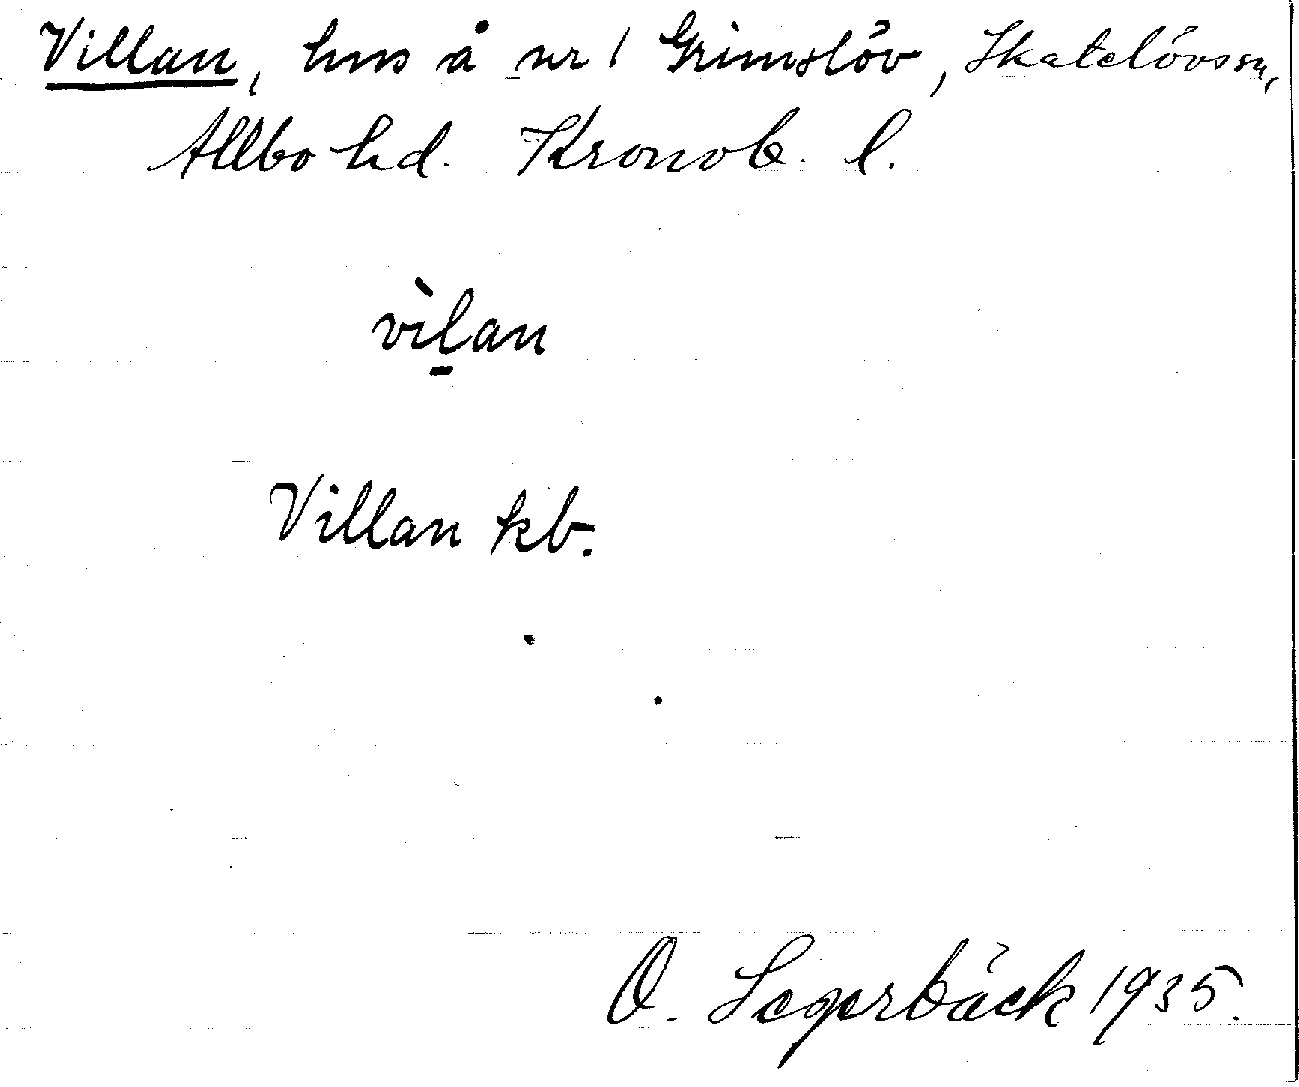 Villan, hus å nr 1 Grimslöv, Skatelövs sn,
Allbo hd. Kronob. l.
vìl̠an
Villan kb.
O. Segerbäck 1935.